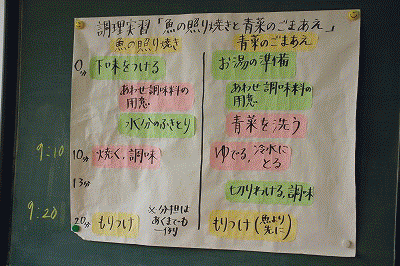 調理実習「魚の照り焼きと青菜のごまあえ」
魚の照り焼き
青菜のごまあえ
0分
下味をつける
お湯の準備
あわせ調味料の
用意
あわせ調味料の
用意
水分のふきとり
青菜を洗う
9:10
10分
焼く、調味
ゆでる、冷水に
とる
13分
切りわける、調味
9:20
20分
もりつけ
※分担は
あくまでも
一例
もりつけ(魚より
先に)